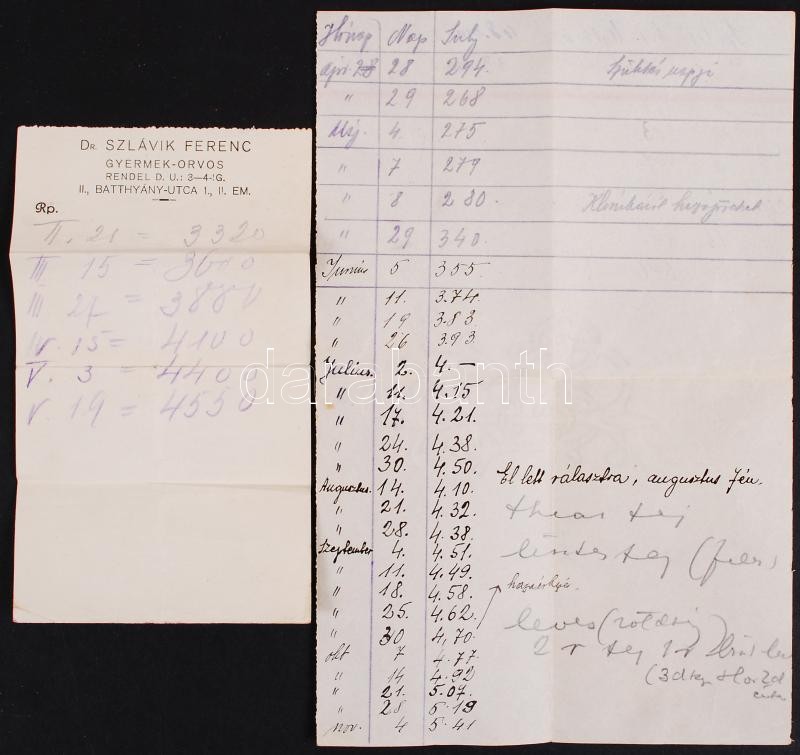 DR. SZLÁVIK FERENC
GYERMEK-ORVOS
RENDEL D. U.: 3—4-IG.
II., BATTHYÁNY-UTCA 1., II. EM.
Rp.
II. 21 = 3320
III 15 = 3600
III 27 = 3880
IV. 15 = 4100
V. 3 = 4400
V. 19 = 4550
Hónap Nap Suly
ápr. 28 28 294.
" 29 268
Máj. 4. 275
" 7 279
" 8 280
" 29 340.
Junius 5 355.
" 11. 3.74.
" 19 3.83.
" 26 3.93.
Julius. 2. 4.—
" 11. 4.15
" 17. 4.21.
" 24. 4.38.
" 30. 4.50.
El lett választva, augusztus 7én.
Augusztus. 14. 4.10.
" 21. 4.32.
" 28. 4.38.
Szeptember 4. 4.51.
" 11. 4.49.
" 18. 4.58.
" 25. 4.62
" 30 4,70.
okt 7 4.77.
" 14 4.92
" 21. 5.07.
" 28 5.19
nov. 4 5.41
tej
leves
2 tej
darabanth